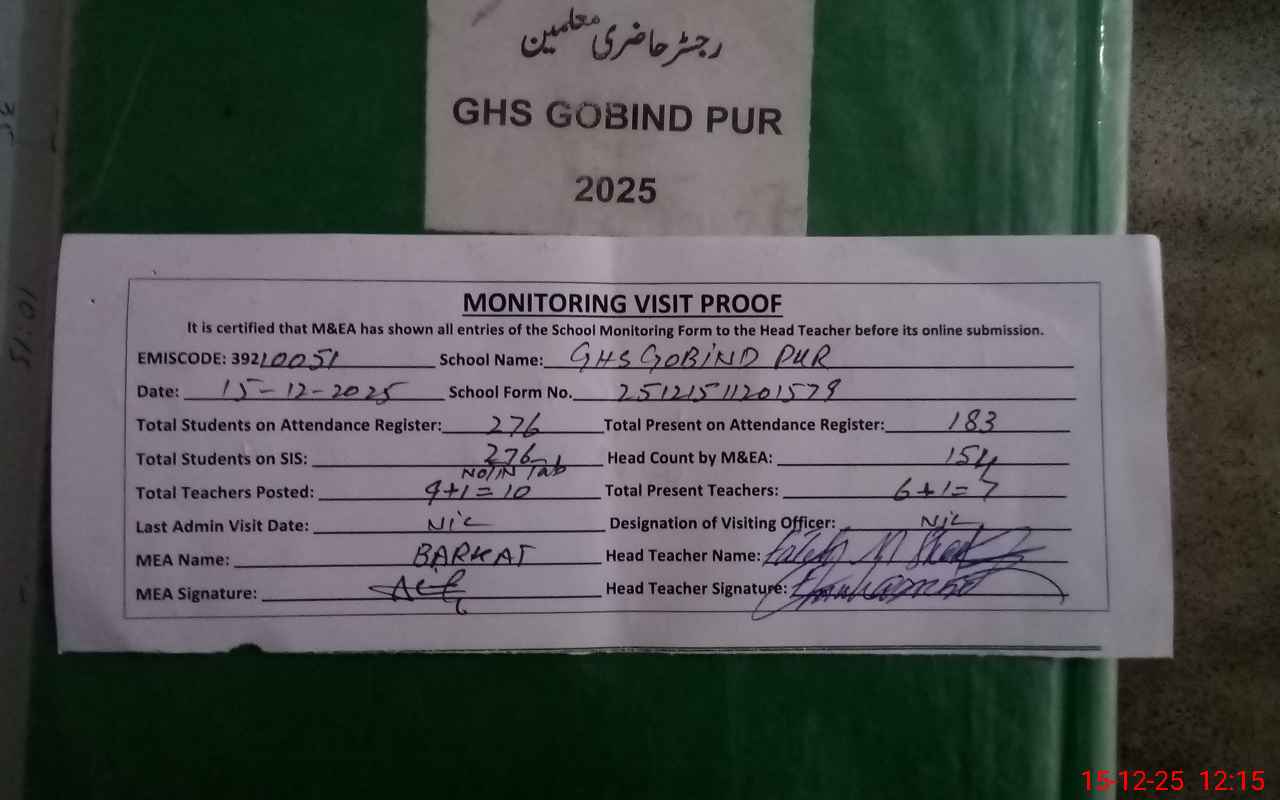 رجسٹر حاضری معلمین
GHS GOBIND PUR
2025
MONITORING VISIT PROOF
It is certified that M&EA has shown all entries of the School Monitoring Form to the Head Teacher before its online submission.
EMISCODE: 39210051 School Name: GHS GOBIND PUR
Date: 15-12-2025 School Form No. 2512151120157
Total Students on Attendance Register: 276 Total Present on Attendance Register: 183
Total Students on SIS: 276 Head Count by M&EA: 154
Not IN Tab
Total Teachers Posted: 9+1=10 Total Present Teachers: 6+1=7
Last Admin Visit Date: Nil Designation of Visiting Officer: Nil
MEA Name: BARKAT Head Teacher Name:
MEA Signature: Head Teacher Signature:
10:15
15-12-25 12:15